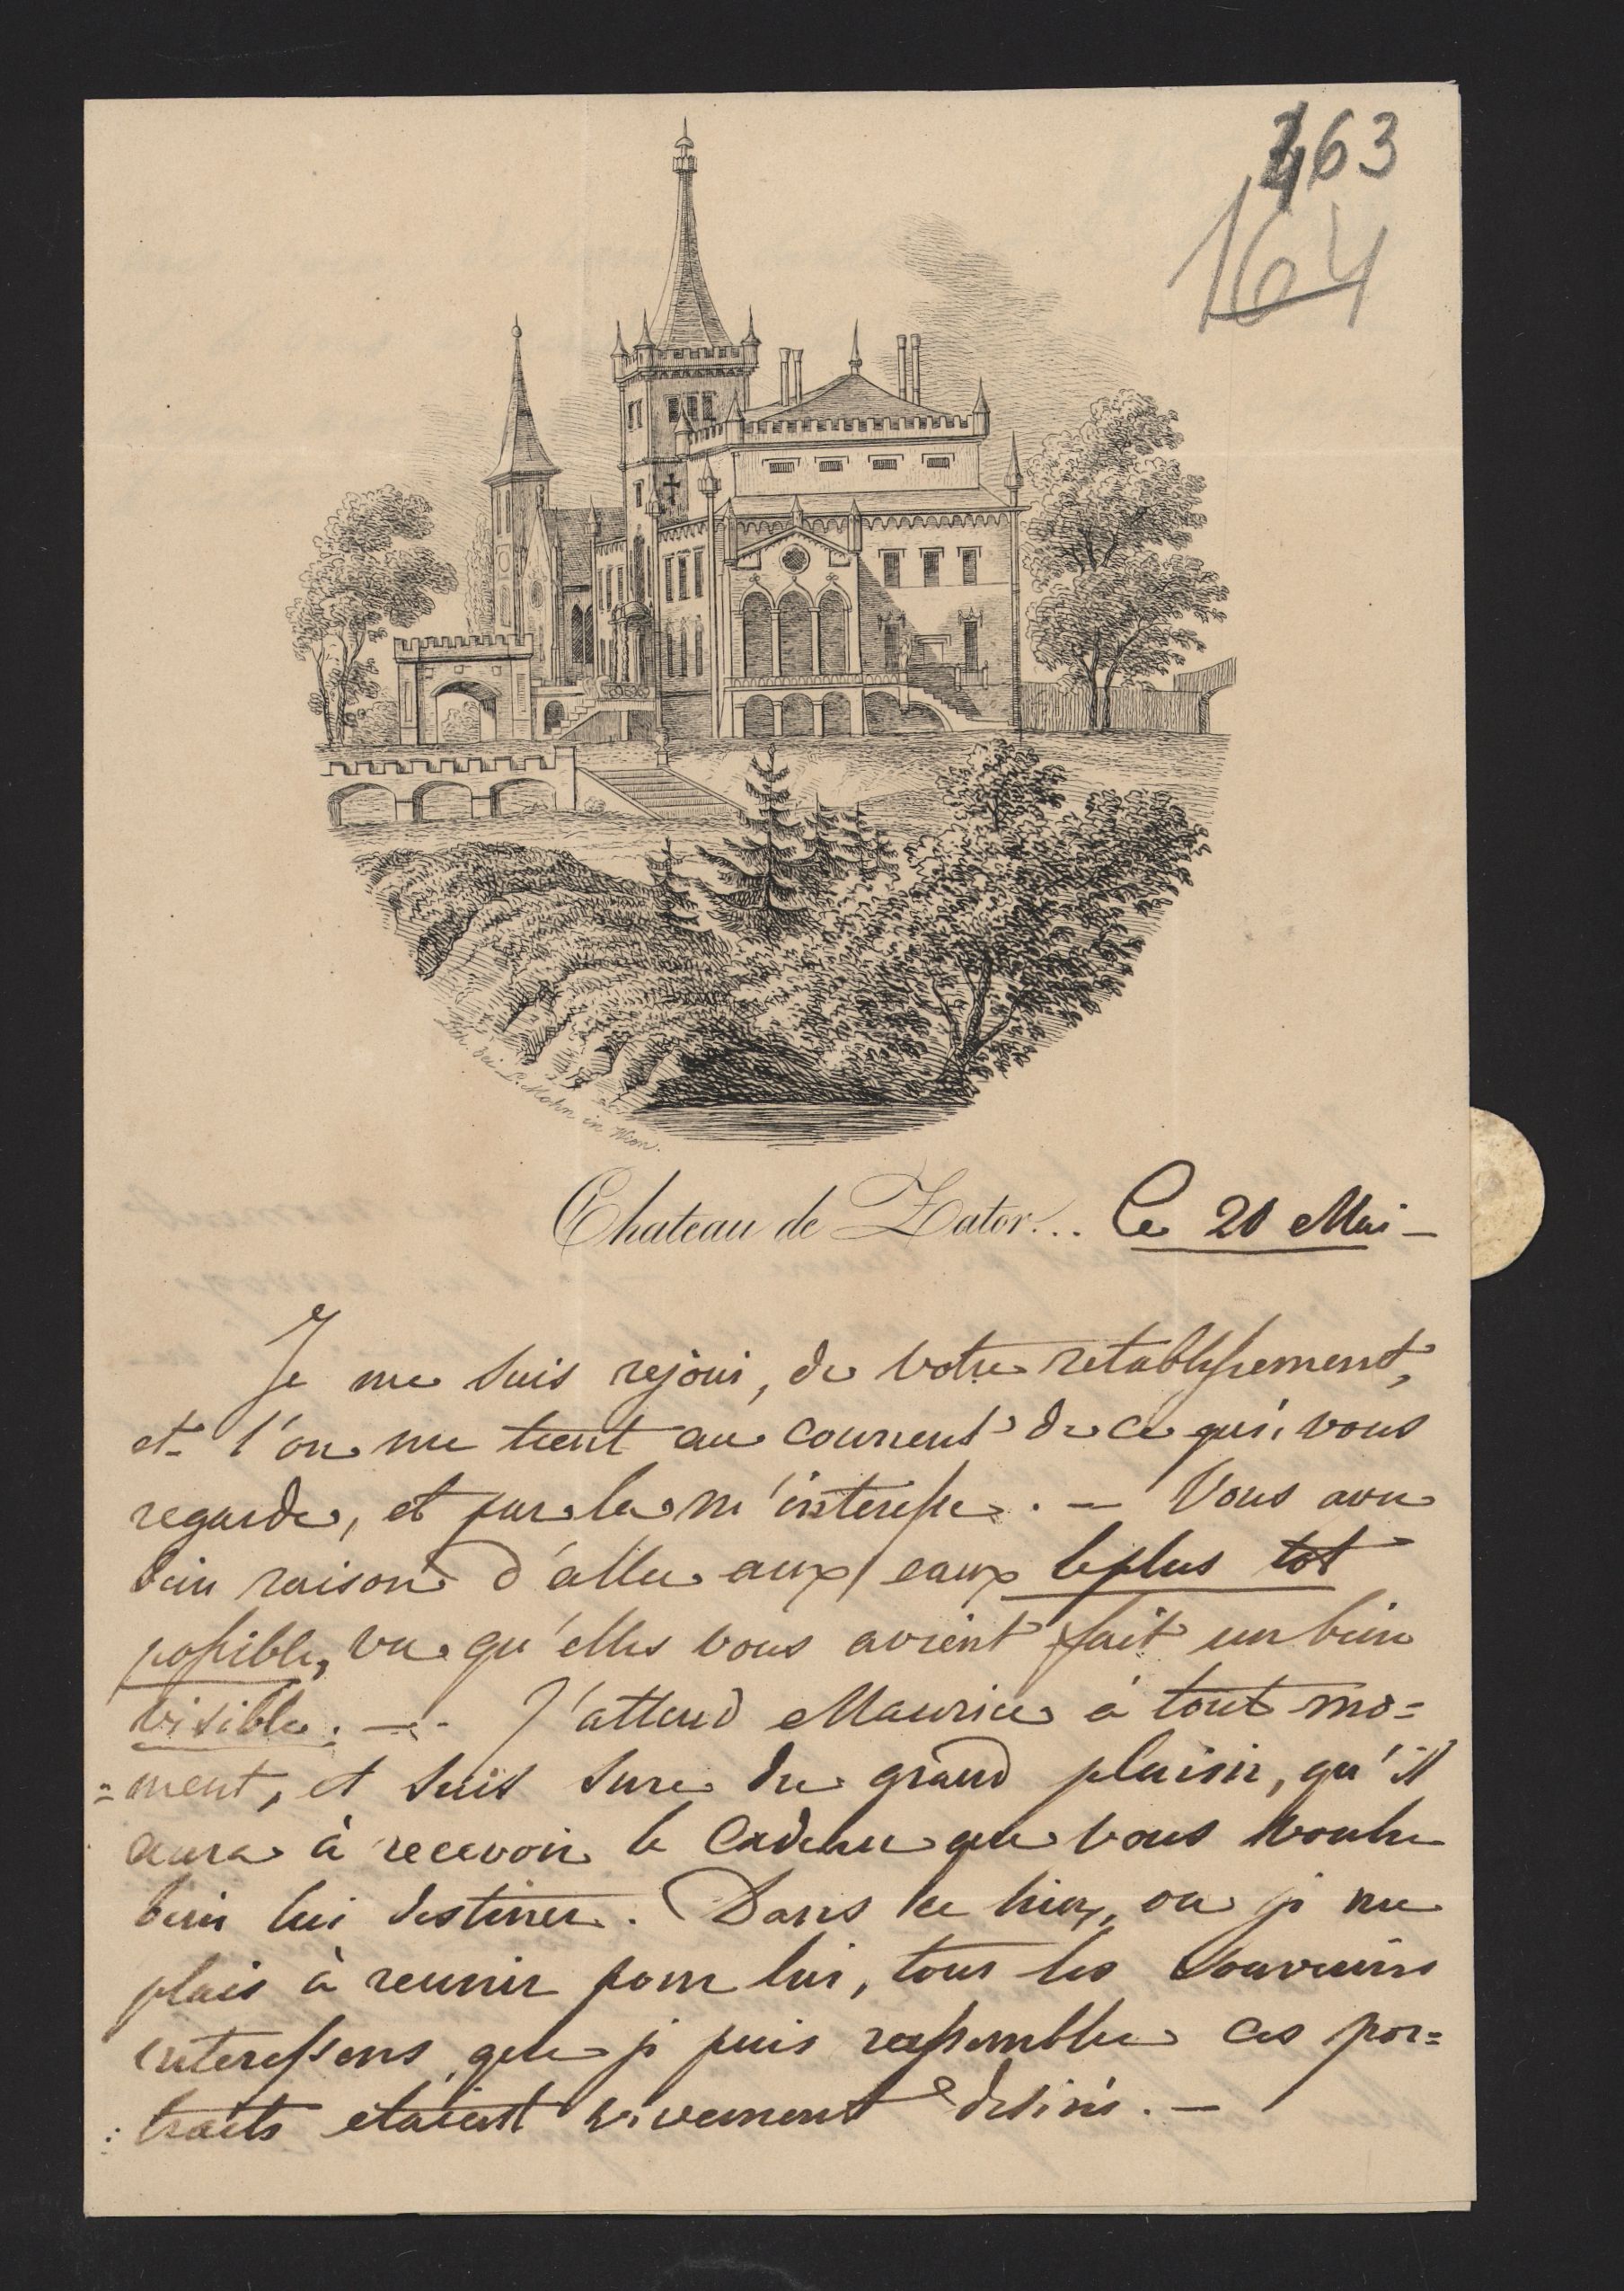 163
164
Lith. bei L. Mohn in Wien.
Chateau de Zator... Ce 20 Mai —
Je me suis rejoui, de votre retablissement,
et l'on me tient au courrent de ce qui vous
regarde, et par la m'interesse. — Vous avez
bien raison d'aller aux eaux le plus tot
possible, vu qu'elles vous avient fait un bien
visible. — J'attend Maurice à tout mo=
=ment, et suis sure du grand plaisir, qu'il
aura à recevoir le Cadeau que vous voulez
bien lui destiner. Dans ce lieu, ou je me
plais à reunir pour lui, tous les souvenirs
interessens que je puis rassembler ces por=
:traits etaient vivement desirés. —